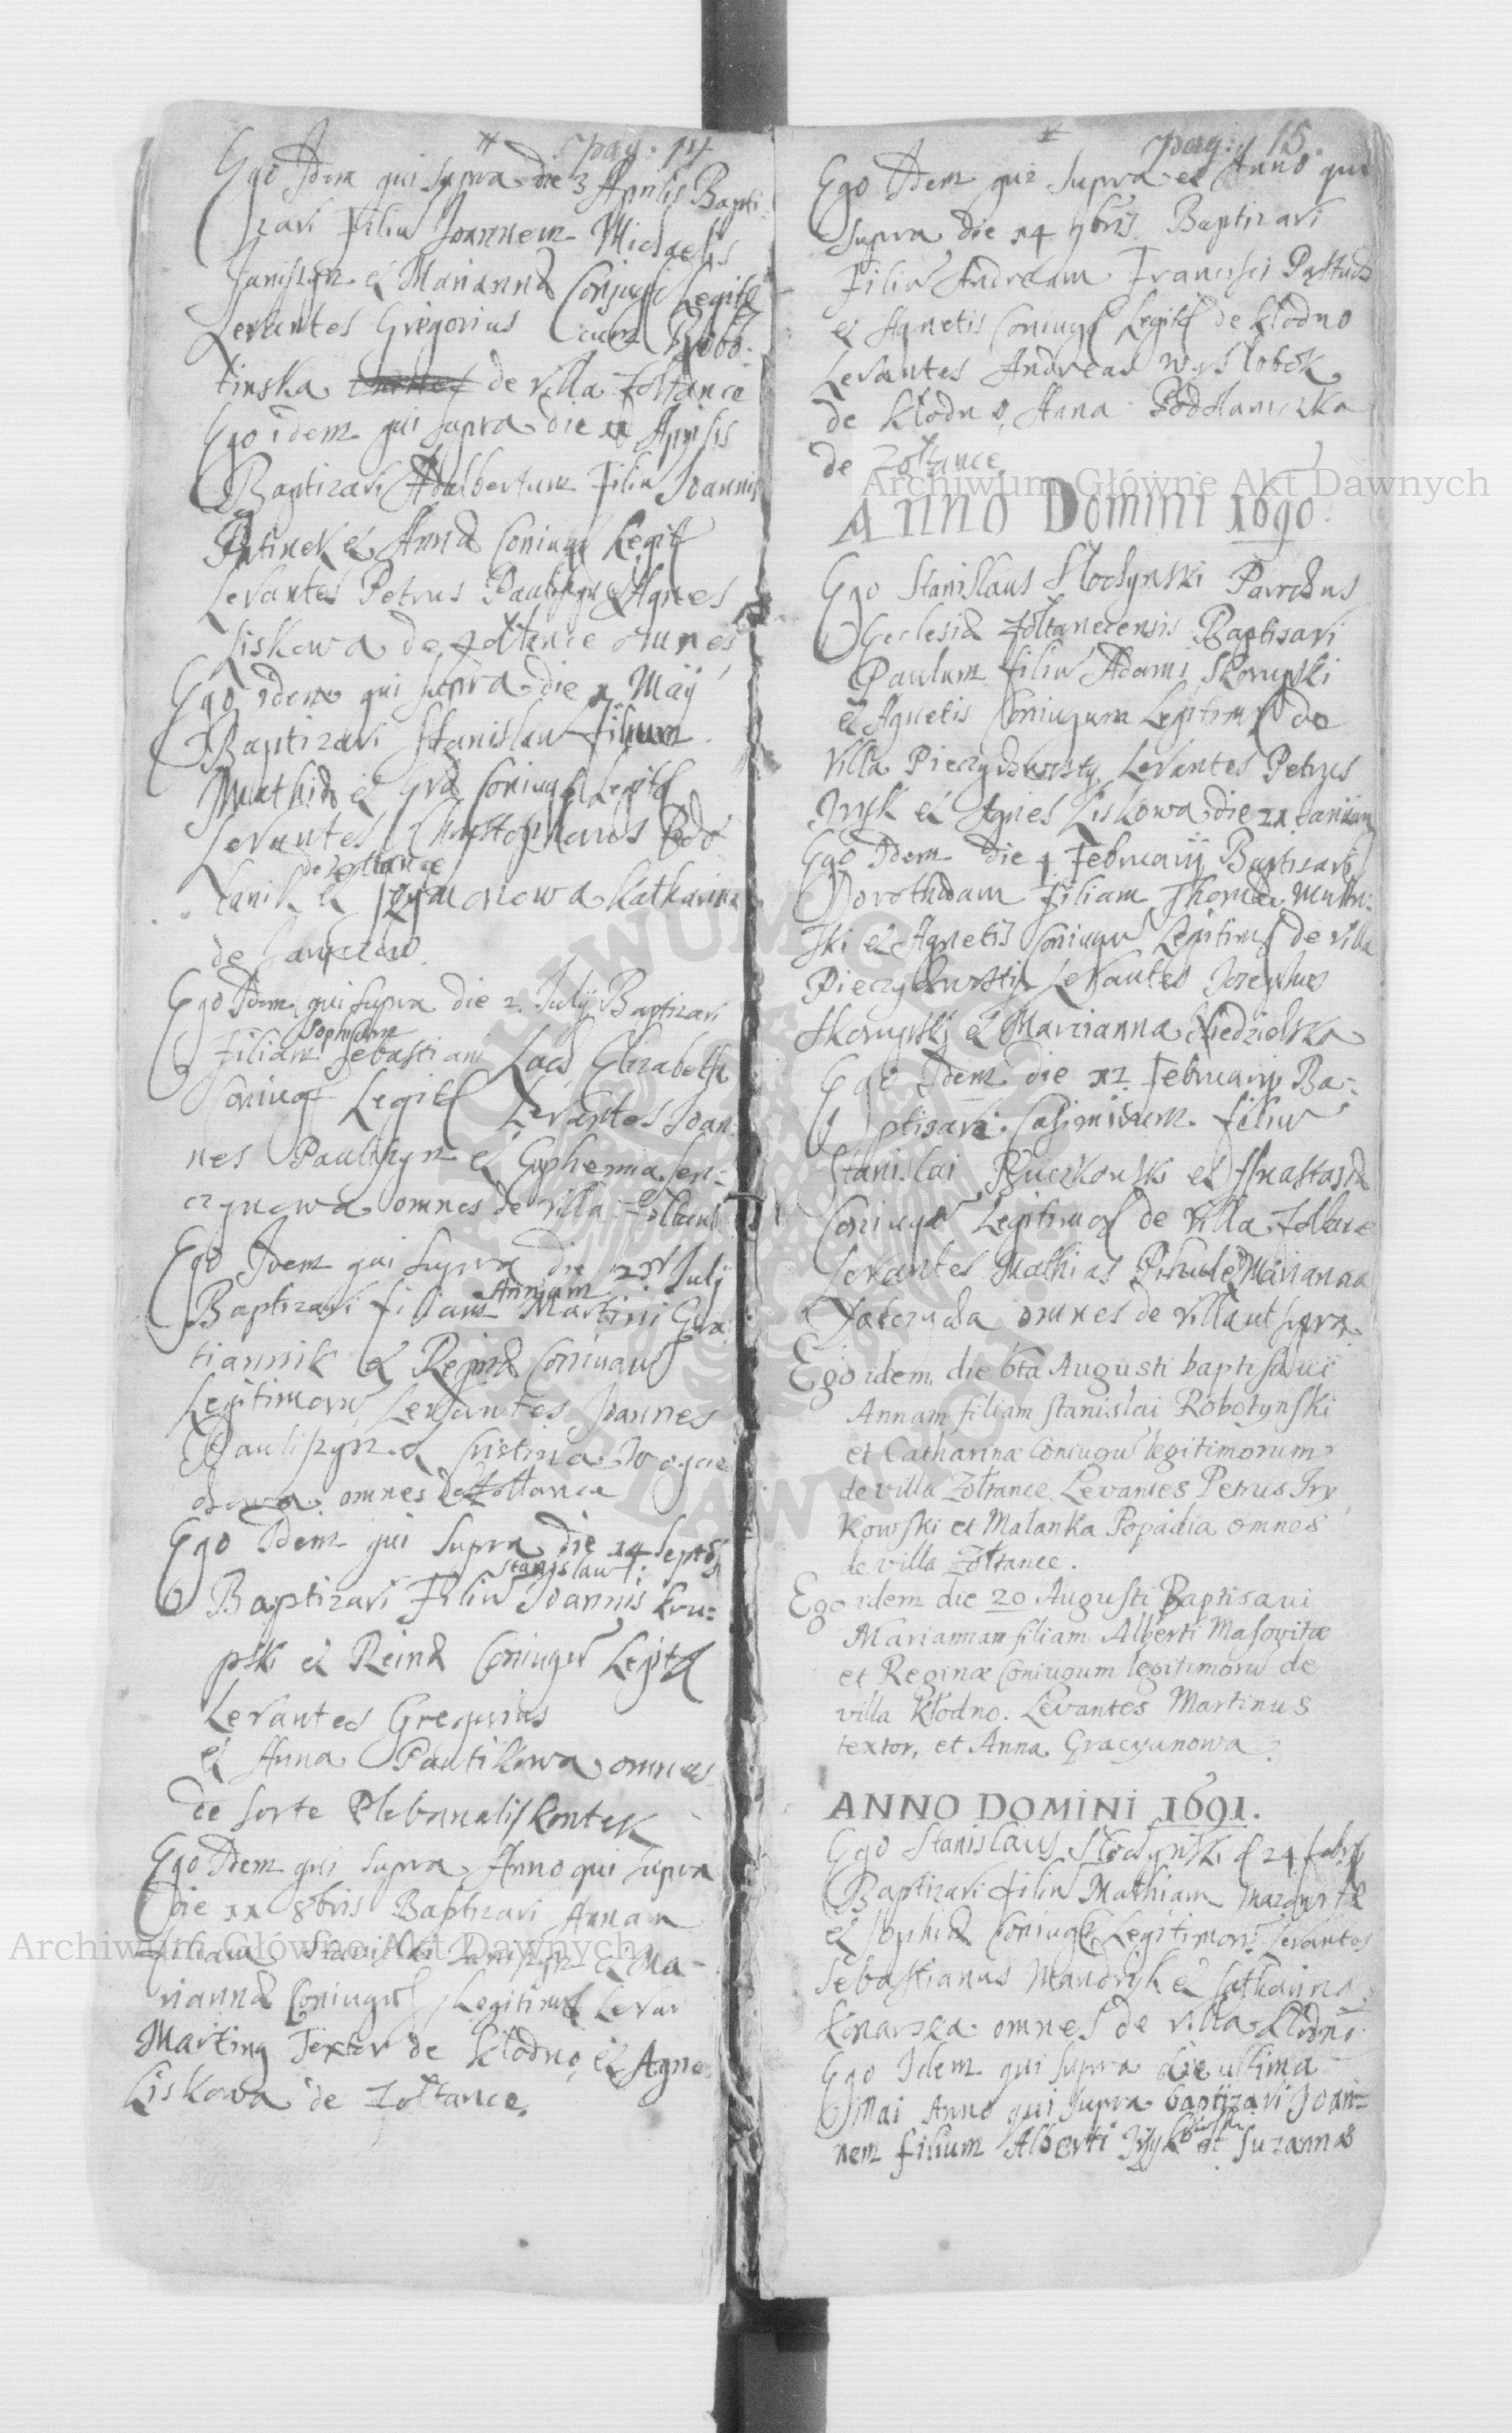 pag: 14
Ego Idem qui supra die 3 Aprilis Bapti-
zavi Filiu Joannem Michaelis
Janiszyn et Mariannæ Conjug Legit
Levantes Gregorius cum Robo-
tinska de villa Zoltance
Ego idem qui supra die Aprilis
Baptizavi Adalbertum Filiu Joannis
et Annæ Coniug Legit
Levantes Petrus Pauliszyn et Agnes
Liskowa de Zoltance omnes
Ego idem qui supra die Maÿ
Baptizavi Stanislau Filium
Mathiæ et Evæ Coniug Legit
Levantes Christophorus Podo
de Zoltance
lanik et Katharina
de
Ego Idem qui supra die 2 Julÿ Baptizavi
Sophiam
Filiam Sebastiani Elizabeth
Coniug Legit Levantes Joan
nes Pauliszyn et Euphemia Sen-
czynowa omnes de villa Zoltance
Ego Idem qui supra die Julÿ
Annam
Baptizavi filiam Martini Gra
tiannik et Reginæ Coniugu
Legitimoru Levantes Joannes
Pauliszyn et Cristina
omnes de Zoltance
Ego Idem qui supra die 14 Septb
Stanislau
Baptizavi Filiu Joannis Kru-
pski et Reinæ Coniugu Legit
Levantes Gregorius
et Anna Pautikowa omnes
de sorte Plebanalis Kontek
Ego Idem qui supra Anno qui supra
die xx 8bris Baptizavi Annam
filiam Stanislai Janiszyn et Ma-
riannæ Coniugu Legitimo Levan
Martin9 Textor de Kłodno, et Agne
Liskowa de Zoltance.
pag: 15.
Ego Idem qui supra et Anno qui
supra die 14 9bris Baptizavi
Filiu Andream Francisci Pastuch
et Agnetis Coniug Legit de Kłodno
Levantes Andreas Wyslobok
de Kłodno, Anna Podolaniczka
de Zoltance
Archiwum Główne Akt Dawnych
ANNO Domini 1690.
Ego Stanislaus Słochynski Parochus
Ecclesiæ Zoltanecensis Baptisavi
Paulum filiu Adami Skorupski
et Agnetis Coniugum Legitimo de
villa Pieczychwosty Levantes Petrus
Irysk et Agnes Liskowa die 21 Januarÿ
Ego Idem die 4 Februarÿ Baptisavi
Dorotheam Filiam Thomæ
ski et Agnetis Coniugu Legitimo de villa
Pieczychwosty Levantes Josephus
Skorupski et Marcianna Niedzielska
Ego Idem die Februarÿ Ba-
ptisavi Casimirum filiu
Stanislai Ruczkowski et Anastasiæ
Coniugu Legitimo de villa Zoltance
Levantes Mathias et Marianna
omnes de villa ut supra
Ego idem die 6ta Augusti baptisavi
Annam filiam Stanislai Robotynski
et Catharinæ Coniugu legitimorum
de villa Zoltance Levantes Petrus Iry
kowski et Małanka Popadia omnes
de villa Zoltance.
Ego idem die 20 Augusti Baptisavi
Mariannam filiam Alberti Masovitæ
et Reginæ Coniugum legitimoru de
villa Kłodno. Levantes Martinus
textor, et Anna Gracyanowa
ANNO DOMINI 1691.
Ego Stanislaus Słochynski d 24 febr
Baptizavi filiu Mathiam
et Sophiæ Coniug Legitimoru Levantes
Sebastianus Mandryk et Catharina
Konarska omnes de villa Kłodno
Ego Idem qui supra die ultima
Mai Anno qui supra baptizavi Joan-
nem filium Alberti et Suzannæ
Archiwum Główne Akt Dawnych